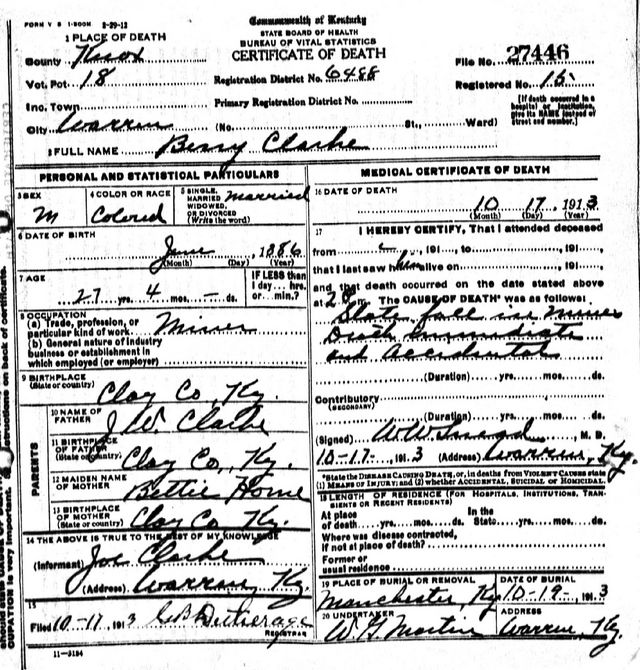 FORM V S 1-500M 2-29-12
Commonwealth of Kentucky
STATE BOARD OF HEALTH
BUREAU OF VITAL STATISTICS
CERTIFICATE OF DEATH
1 PLACE OF DEATH
County Knox
Vot. Pct. 18
Inc. Town
City Warren (No. St., Ward)
Registration District No. 6488
Primary Registration District No.
File No. 27446
Registered No. 15
[If death occurred in a hospital or institution, give its NAME instead of street and number.]
2 FULL NAME Berry Clarke
PERSONAL AND STATISTICAL PARTICULARS
3 SEX M
4 COLOR OR RACE Colored
5 SINGLE, MARRIED, WIDOWED, OR DIVORCED (Write the word) Married
6 DATE OF BIRTH June, 1886
(Month) (Day) (Year)
7 AGE 27 yrs. 4 mos. - ds.
IF LESS than 1 day... hrs. or min.?
8 OCCUPATION
(a) Trade, profession, or particular kind of work Miner
(b) General nature of industry business or establishment in which employed (or employer)
9 BIRTHPLACE (State or country) Clay Co, Ky.
PARENTS
10 NAME OF FATHER J W. Clarke
11 BIRTHPLACE OF FATHER (State or country) Clay Co, Ky.
12 MAIDEN NAME OF MOTHER Bettie Horne
13 BIRTHPLACE OF MOTHER (State or country) Clay Co Ky.
14 THE ABOVE IS TRUE TO THE BEST OF MY KNOWLEDGE
(Informant) Joe Clarke
(Address) Warren, Ky.
15
Filed 10-11, 1913
REGISTRAR
11-3184
MEDICAL CERTIFICATE OF DEATH
16 DATE OF DEATH
10 17, 1913
(Month) (Day) (Year)
17 I HEREBY CERTIFY, That I attended deceased
from , 191 , to , 191 ,
that I last saw him alive on , 191 ,
and that death occurred on the date stated above
at 2 m. The CAUSE OF DEATH* was as follows:
Slate fall in Mines
Death immediate
and Accidental
(Duration) yrs. mos. ds.
Contributory (SECONDARY)
(Duration) yrs. mos. ds.
(Signed) W W Snead, M. D.
10-17-, 1913 (Address) Warren, Ky.
*State the DISEASE CAUSING DEATH, or, in deaths from VIOLENT CAUSES state (1) MEANS OF INJURY; and (2) whether ACCIDENTAL, SUICIDAL or HOMICIDAL.
18 LENGTH OF RESIDENCE (FOR HOSPITALS, INSTITUTIONS, TRANSIENTS OR RECENT RESIDENTS)
At place of death yrs. mos. ds. In the State yrs. mos. ds.
Where was disease contracted, if not at place of death?
Former or usual residence
19 PLACE OF BURIAL OR REMOVAL Manchester, Ky
DATE OF BURIAL 10-19-, 1913
20 UNDERTAKER W G Martin
ADDRESS Warren, Ky.